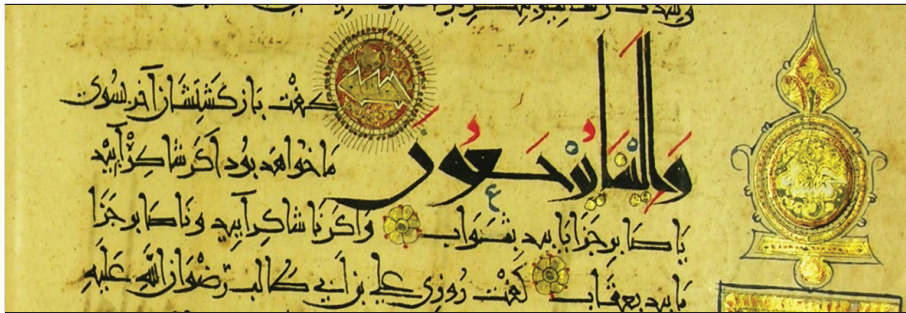 وَإِلَيْنَا تُرْجَعُونَ
كفت باز كشتشان آخر بسوى
ما خواهد بود اكر شاكر آييد
يا صابر جزا يابيد بثواب واكر نا شاكر آييد و نا صابر جزا
يابيد بعقاب كفت روزى على بن ابى طالب رضوان الله عليه